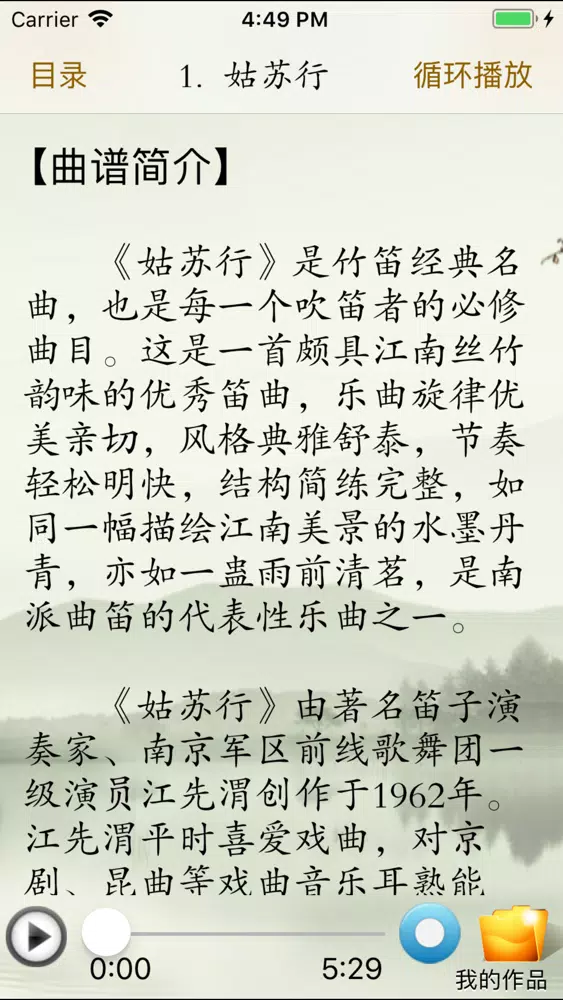 Carrier 4:49 PM
目录 1. 姑苏行 循环播放
【曲谱简介】
《姑苏行》是竹笛经典名
曲，也是每一个吹笛者的必修
曲目。这是一首颇具江南丝竹
韵味的优秀笛曲，乐曲旋律优
美亲切，风格典雅舒泰，节奏
轻松明快，结构简练完整，如
同一幅描绘江南美景的水墨丹
青，亦如一盅雨前清茗，是南
派曲笛的代表性乐曲之一。
《姑苏行》由著名笛子演
奏家、南京军区前线歌舞团一
级演员江先渭创作于1962年。
江先渭平时喜爱戏曲，对京
剧、昆曲等戏曲音乐耳熟能
0:00 5:29 我的作品